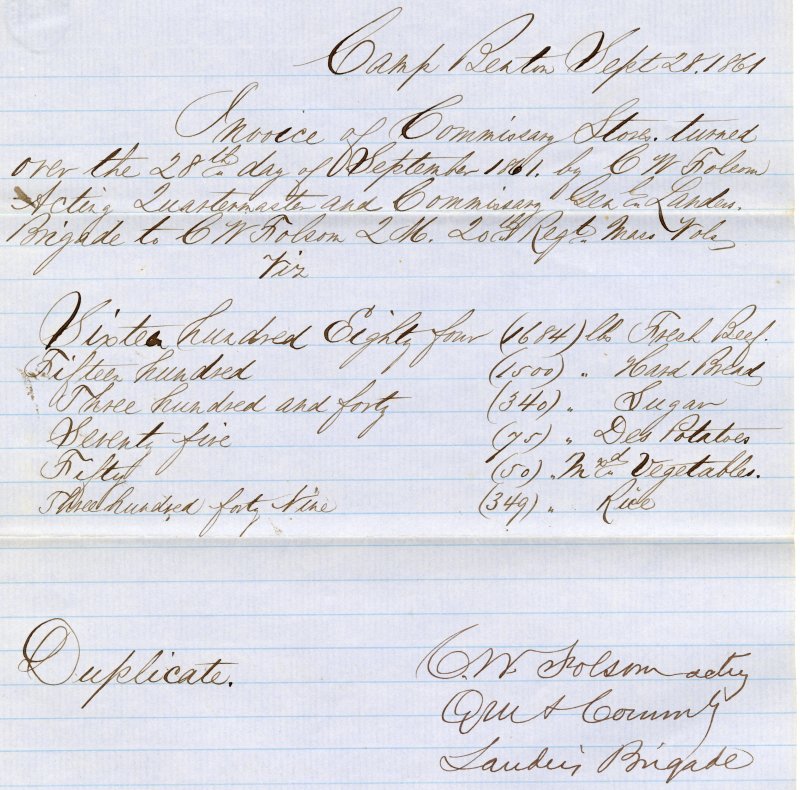 Camp Benton Sept 28. 1861
Invoice of Commissary Stores. turned
over the 28th day of September 1861. by C W Folsom
Acting Quartermaster and Commissary Gen Landers.
Brigade to C W Folsom Q M. 20th Regt Mass Vols
Viz
Sixteen hundred Eighty four (1684) lbs Fresh Beef.
Fifteen hundred (1500) " Hard Bread
Three hundred and forty (340) " Sugar
Seventy five (75) " Des Potatoes
Fifty (50) " Mxd Vegetables.
Three hundred forty Nine (349) " Rice
Duplicate.
C. W. Folsom actg
QM & Commy
Landers Brigade